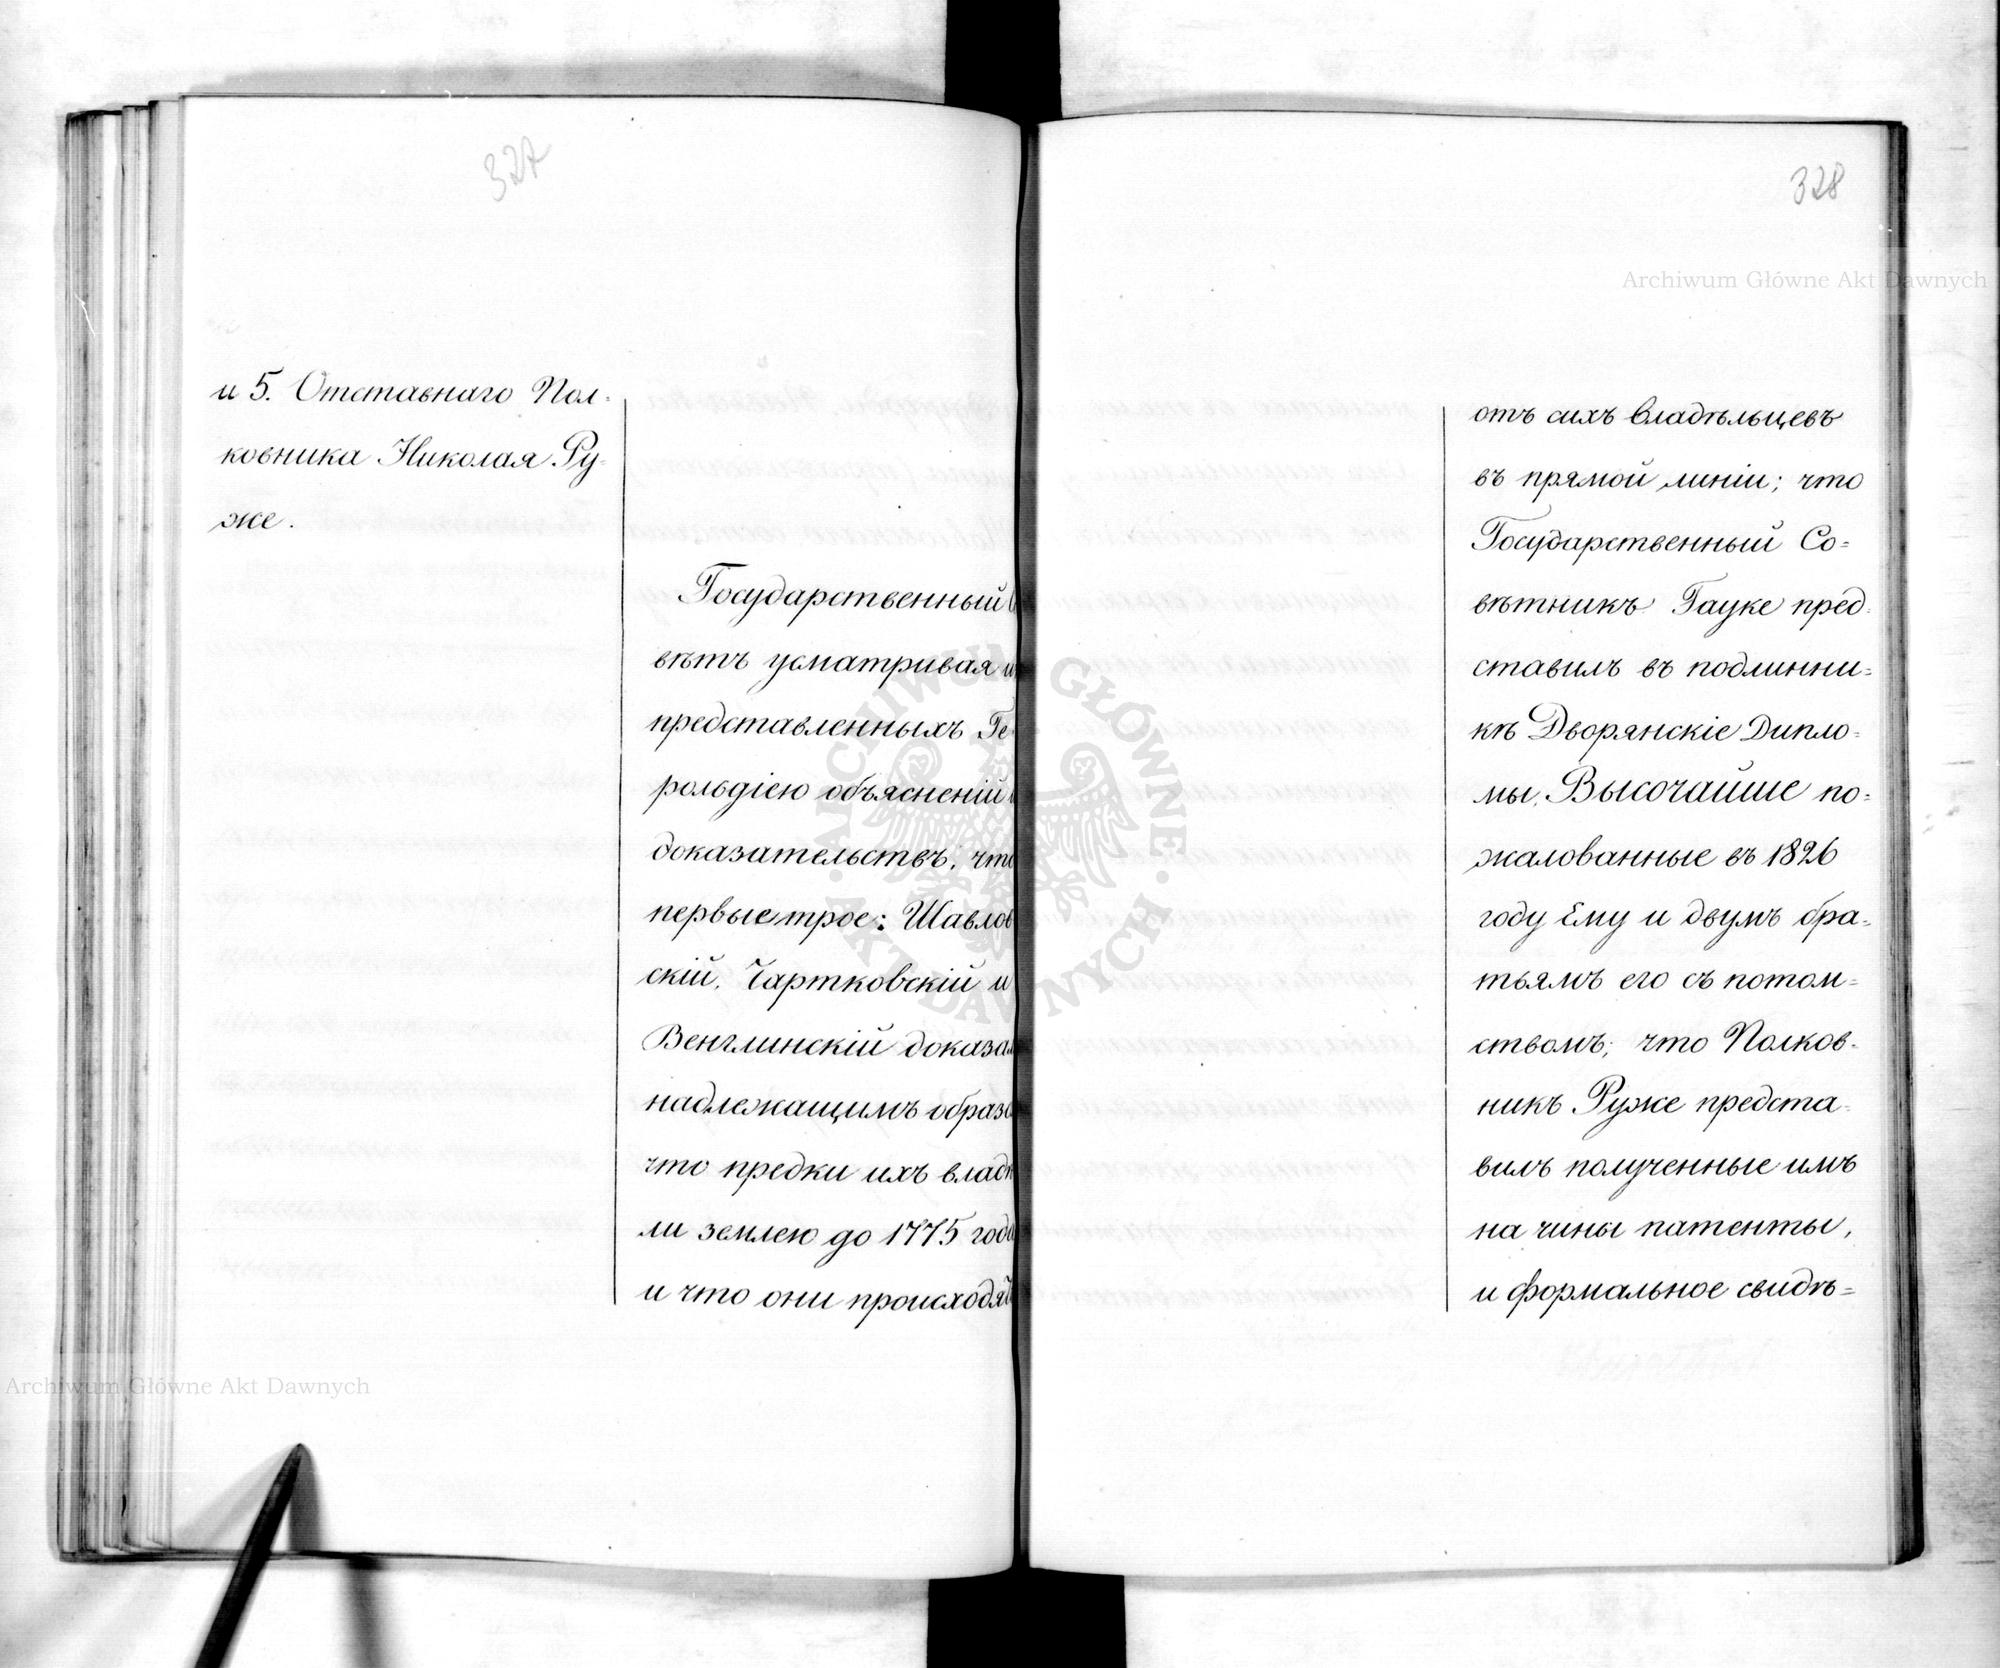 327
и 5. Отставнаго Пол-
ковника Николая Ру-
же.
Государственный
вѣтъ усматривая и
представленныхъ Ге-
рольдіею объясненій
доказательствъ, что
первые трое: Шавлов
скій, Чартковскій и
Венглинскій доказа
надлежащимъ образо
что предки ихъ владѣ
ли землею до 1775 года
и что они происходя
328
Archiwum Główne Akt Dawnych
отъ сихъ владѣльцевъ
въ прямой линіи; что
Государственный Со-
вѣтникъ Гауке пред-
ставилъ въ подлинни-
кѣ Дворянскіе Дипло-
мы, Высочайше по-
жалованные въ 1826
году Ему и двумъ бра-
тьямъ его съ потом-
ствомъ; что Полков-
никъ Руже предста-
вилъ полученные имъ
на чины патенты,
и формальное свидѣ-
ARCHIWUM GŁÓWNE AKT DAWNYCH
Archiwum Główne Akt Dawnych